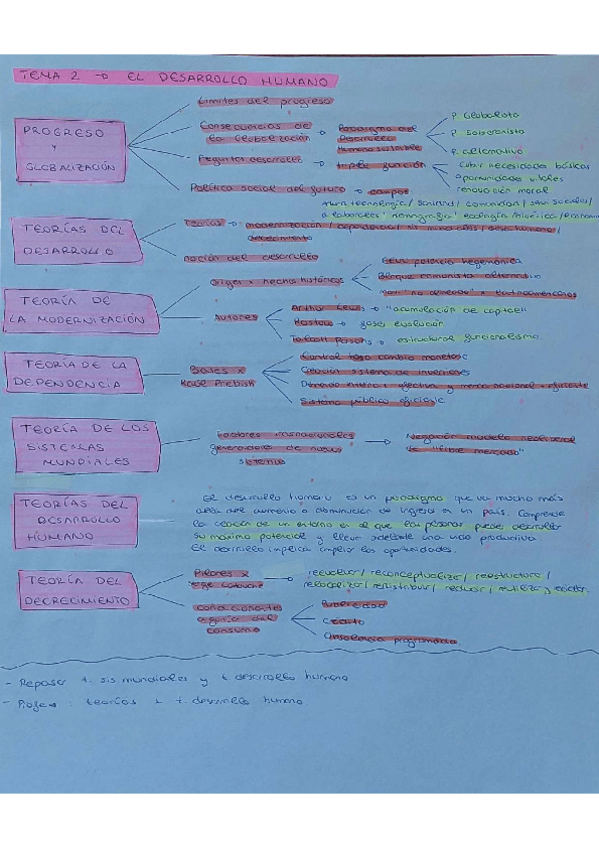 TEMA 2 → EL DESARROLLO HUMANO
PROGRESO
Y
GLOBALIZACIÓN
Límites del progreso
Consecuencias de
la Globalización → Paradigma del
Desarrollo
Humano
P. Globalista
P. Soberanista
P. alternativo
desarrollo → triple función
Cubrir necesidades básicas
oportunidades
renovación moral
Política social del futuro → campos
TEORÍAS DEL
DESARROLLO
Teorías → modernización / dependencia / sis mundiales / des humano /
decrecimiento
noción del desarrollo
TEORÍA DE
LA MODERNIZACIÓN
Origen x hechos históricos
potencia hegemónica
Bloque comunista alternativo
Autores
Arthur Lewis → "acumulación de capital"
Rostow → fases evolución
Talcott Parsons → estructural funcionalismo.
TEORÍA DE LA
DEPENDENCIA
Bases x
Raúl Prebish
Control tasa cambio monetario
Creación sistema de inversiones
Demanda interna
Sistema público eficiente
TEORÍA DE LOS
SISTEMAS
MUNDIALES
Factores transnacionales
generadores de nuevos
sistemas
Negación modelo neoliberal
de "libre mercado"
TEORÍAS DEL
DESARROLLO
HUMANO
El desarrollo humano es un paradigma que va mucho más
allá del aumento o disminución de ingresos en un país. Comprende
la creación de un entorno en el que las personas puedan desarrollar
su máximo potencial y llevar adelante una vida productiva.
El desarrollo implica ampliar las oportunidades.
TEORÍA DEL
DECRECIMIENTO
Pilares x
Serge Latouche
reevaluar / reconceptualizar / reestructurar /
relocalizar / redistribuir / reducir / reutilizar y reciclar.
del
consumo
Publicidad
Crédito
Obsolencia programada
- Repasar t. sis. mundiales y t. desarrollo humano
: teorías t. desarrollo humano